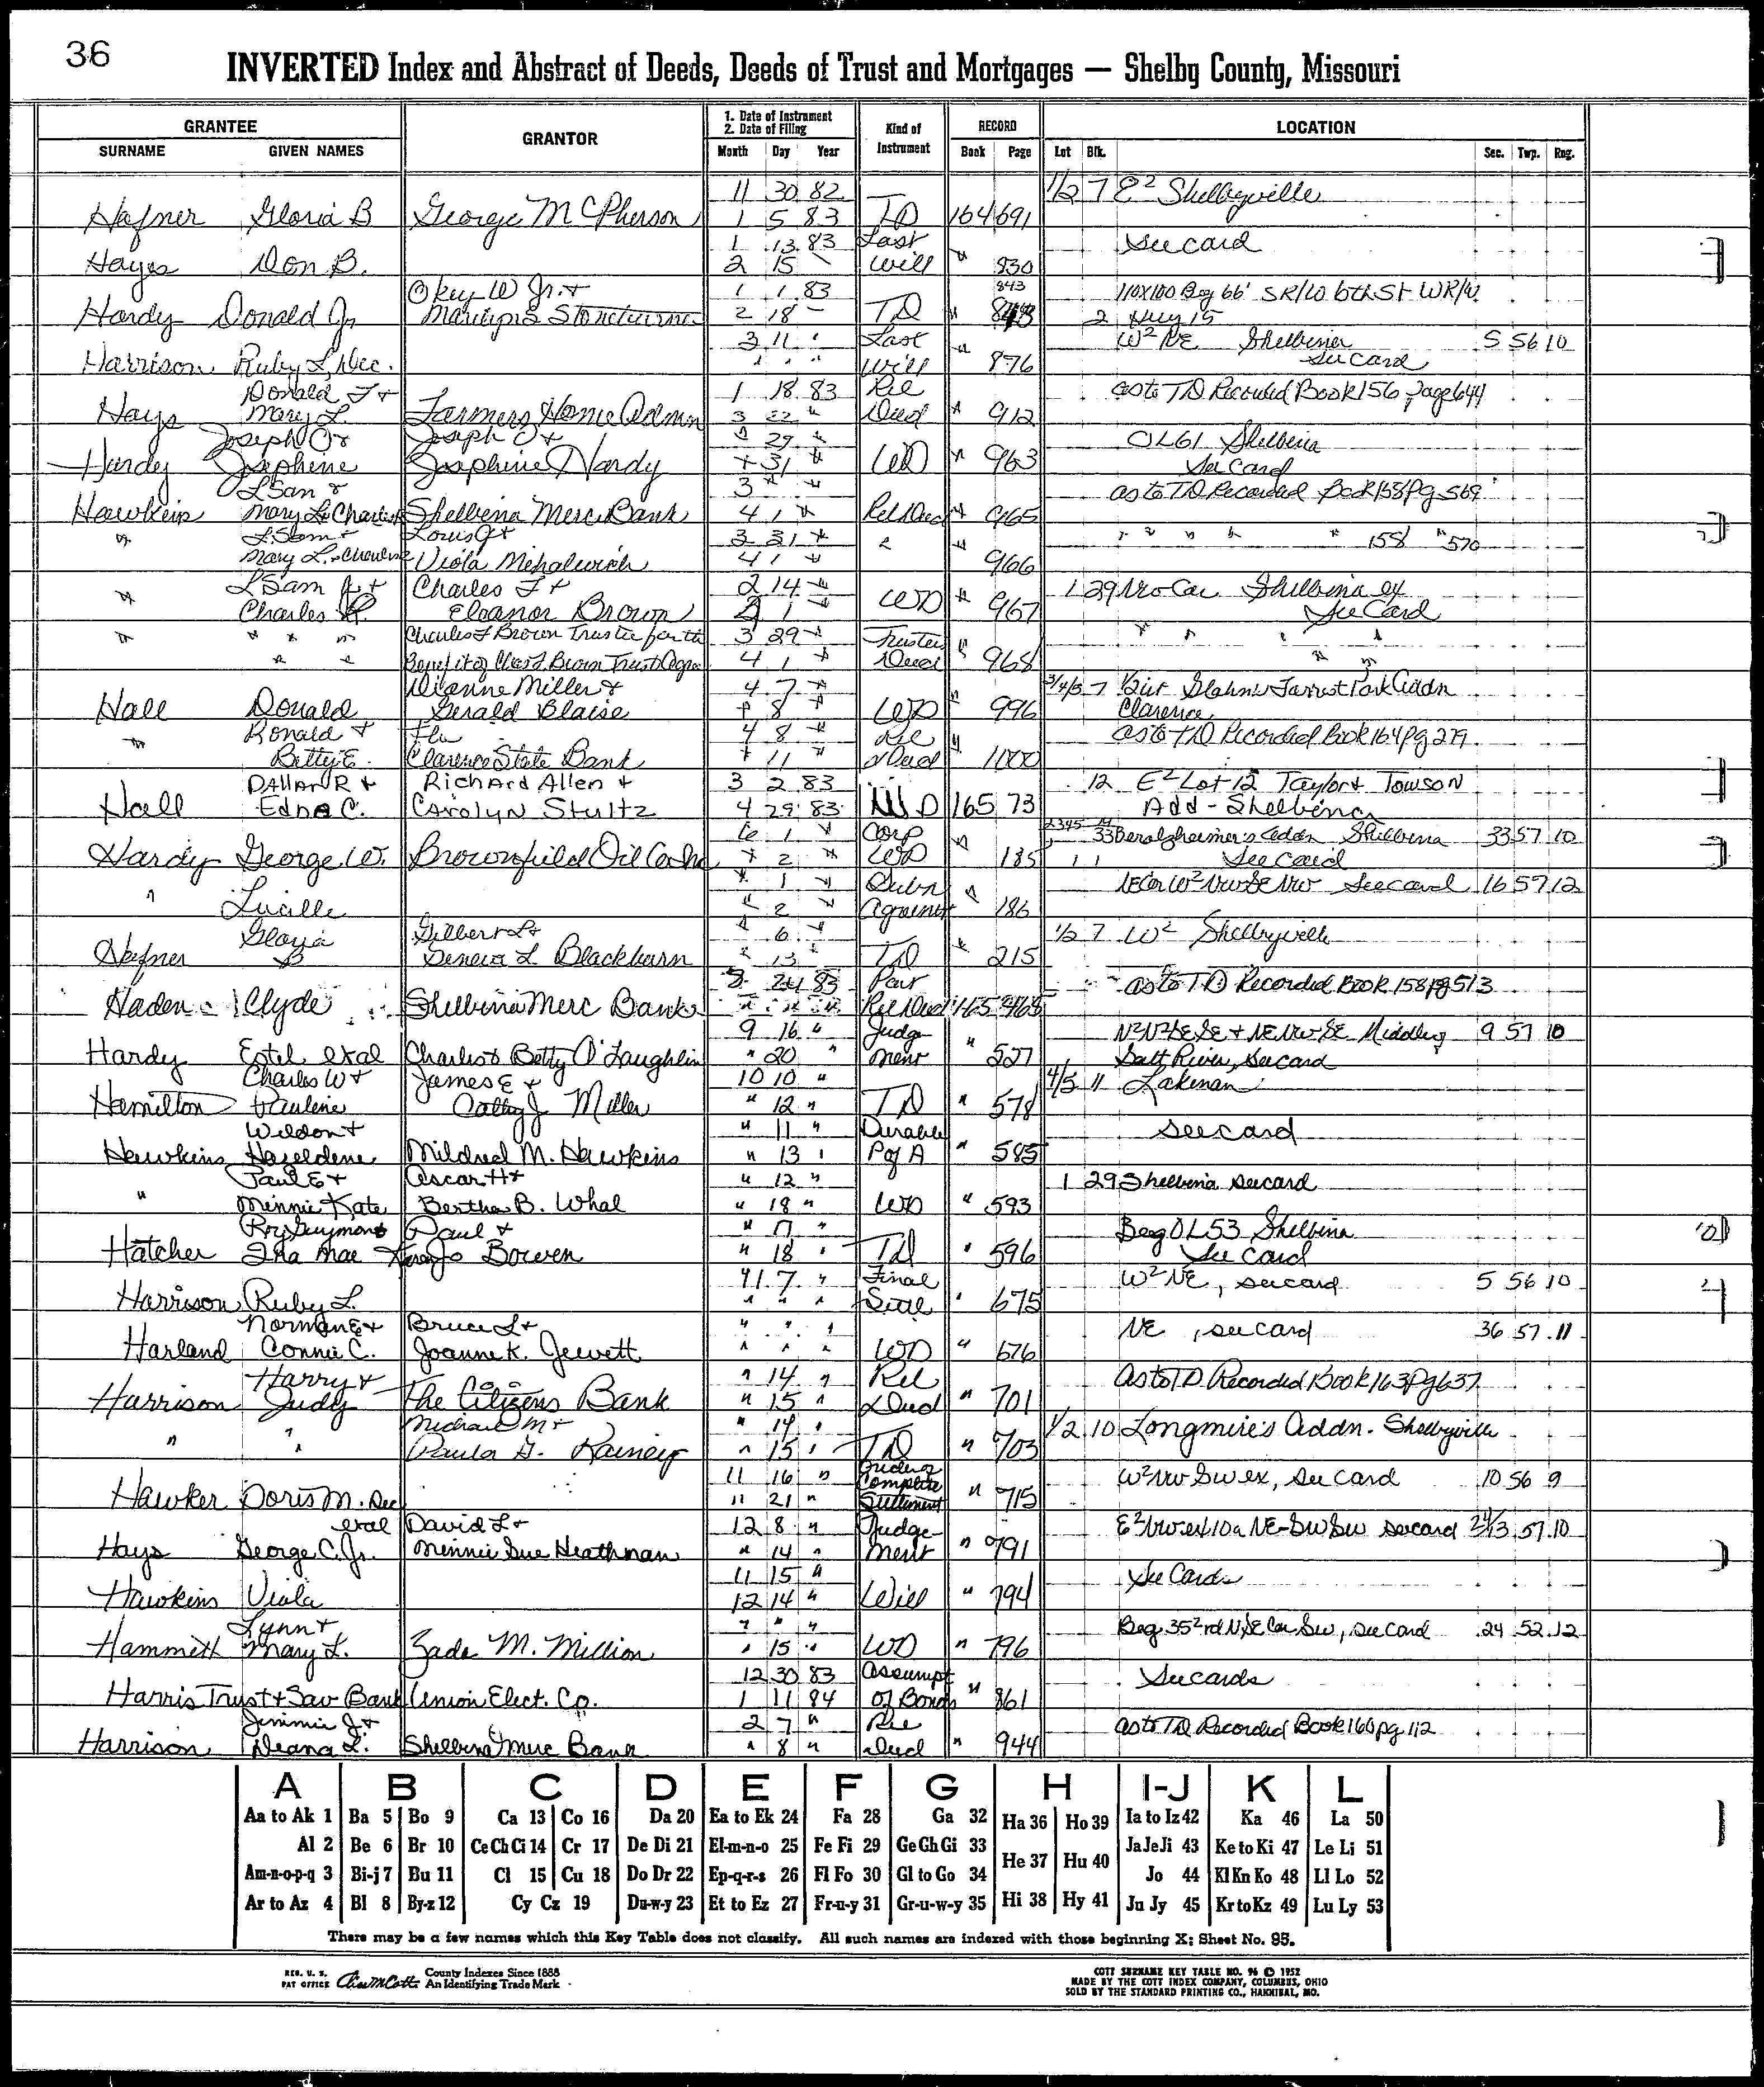 36
INVERTED Index and Abstract of Deeds, Deeds of Trust and Mortgages — Shelby County, Missouri
GRANTEE GRANTOR 1. Date of Instrument 2. Date of Filing Kind of Instrument RECORD LOCATION
SURNAME GIVEN NAMES Month Day Year Book Page Lot Blk. Sec. Twp. Rng.
11 30 82 1/2 7 E2 Shelbyville
Hafner Gloria B George McPherson 1 5 83 TD 164 691
1 13 83 Last See card
Hayes Don B. 2 15 Will " 830
Okey W Jr. + 1 1 83 843 110X100 Beg 66' SR/W 6th St WR/W
Hardy Donald Jr 2 18 TD " 2 Hwy 15
3 11 " Last W2 NE Shelbina 5 56 10
Harrison Ruby L, Dec. " " " Will " 876 See Card
Donald F + 1 18 83 Rel as to TD Recorded Book 156 Page 644
Hays Mary L. Farmers Home Admn 3 22 " Deed " 912
Joseph O + Joseph O + " 29 " OL61 Shelbina
Hardy Josephine Josephine Hardy " 31 " WD " 963 See Card
L San + 3 " " as to TD Recorded Book 158 Pg 569
Hawkins Shelbina Merc Bank 4 1 " Rel Deed " 965
L. Sam + Louis J + 3 31 " " " " " " " 158 " 570
" Viola 4 1 " " 966
L Sam Jr. + Charles F + 2 14 " 1 29 Shelbina ex
" Charles Eleanor Brown 1 " WD " 967 See Card
" " " " Charles F Brown Trustee for the 3 29 " Trustee " " " "
" " Benefit of Chas F. Brown Trust 4 1 " Deed " 968 " "
Dianne Miller + 4 7 " 3/4/5 7 Forrest Park Addn
Hall Donald Gerald Blaise " 8 " WD " 996 Clarence
" Ronald + 4 8 " Rel as to TD Recorded Book 164 pg 279
Betty E. Clarence State Bank " 11 " Deed " 1000
Dallan R + Richard Allen + 3 2 83 12 E2 Lot 12 Taylor + Towson
Hall Edna C. Carolyn Stultz 4 29 83 WD 165 73 Add - Shelbina
6 1 " Corp 2345 33 Beralzheimer's Addn Shelbina 33 57 10
Hardy George W. Brownfield Oil Co Inc " 2 " WD " 185 1 1 See card
" 1 " Subn See card 16 57 12
" Lucille " 2 " Agrement " 186
Gloria Gilbert L + " 6 " 1/2 7 W2 Shelbyville
Hafner B Geneva L Blackburn " 13 " TD " 215
24 83 Part as to TD Recorded Book 158 pg 513
Haden Clyde Shelbina Merc Bank Rel Deed 165
9 16 " Judge 9 57 10
Hardy Estel etal Charles + Betty O'Laughlin " 20 " ment " 527 Salt River, see card
Charles W + James E + 10 10 " 4/5 11 Lakenan
Hamilton Pauline Cathy J Miller " 12 " TD " 578
Weldon + " 11 " Durable see card
Hawkins Hazeldene Mildred M. Hawkins " 13 " P of A " 585
Paul E + Oscar H + " 12 " 1 29 Shelbina see card
" Minnie Kate Bertha B. Whal " 18 " WD " 593
Roy Guymont Paul + " 17 " Beg OL53 Shelbina
Hatcher Ina Mae Bowen " 18 " Td " 596 See Card
11 7 " Final W2 NE, see card 5 56 10
Harrison Ruby L. " " " Settl " 675
Norman E + Bruce L + " " " NE, see card 36 57 11
Harland Connie C. Joanne K. Jewett " " " WD " 676
Harry + " 14 " Rel As to TD Recorded Book 163 Pg 637
Harrison Judy The Citizens Bank " 15 " Deed " 701
Michael M + " 14 " 1/2 10 Longmire's Addn. Shelbyville
" " Paula G. Rainey " 15 " TD " 703
11 16 " Complete W2 NW SW ex, see card 10 56 9
Hawker Doris M. Dec " 21 " Settlement " 715
etal David L + 12 8 " Judge- E2 NW ex 10a NE-SW SW see card 24/13 57 10
Hays George C. Jr. Minnie Sue Heathman " 14 " ment " 791
11 15 " See Cards
Hawkins Viola 12 14 " Will " 794
Lynn + " " " Beg 35 2 rd N, SE Cor SW, see card 24 52 12
Hammett Mary L. Zada M. Million " 15 " WD " 796
12 30 83 Assumpt See cards
Harris Trust + Sav Bank Union Elect. Co. 1 11 84 of Bonds " 861
Jimmie J + 2 7 " Rel as to TD Recorded Book 160 pg 112
Harrison Deana L. Shelbina Merc Bank " 8 " Deed " 944
A B C D E F G H I-J K L
Aa to Ak 1 Ba 5 Bo 9 Ca 13 Co 16 Da 20 Ea to Ek 24 Fa 28 Ga 32 Ha 36 Ho 39 Ia to Iz 42 Ka 46 La 50
Al 2 Be 6 Br 10 Ce Ch Ci 14 Cr 17 De Di 21 El-m-n-o 25 Fe Fi 29 Ge Gh Gi 33 He 37 Hu 40 Ja Je Ji 43 Ke to Ki 47 Le Li 51
Am-n-o-p-q 3 Bi-j 7 Bu 11 Cl 15 Cu 18 Do Dr 22 Ep-q-r-s 26 Fl Fo 30 Gl to Go 34 Jo 44 Kl Kn Ko 48 Ll Lo 52
Ar to Az 4 Bl 8 By-z 12 Cy Cz 19 Du-w-y 23 Et to Ez 27 Fr-u-y 31 Gr-u-w-y 35 Hi 38 Hy 41 Ju Jy 45 Kr to Kz 49 Lu Ly 53
There may be a few names which this Key Table does not classify. All such names are indexed with those beginning X; Sheet No. 95.
REG. U. S. PAT OFFICE County Indexes Since 1888 An Identifying Trade Mark
COTT SURNAME KEY TABLE NO. 96 © 1952
MADE BY THE COTT INDEX COMPANY, COLUMBUS, OHIO
SOLD BY THE STANDARD PRINTING CO., HANNIBAL, MO.